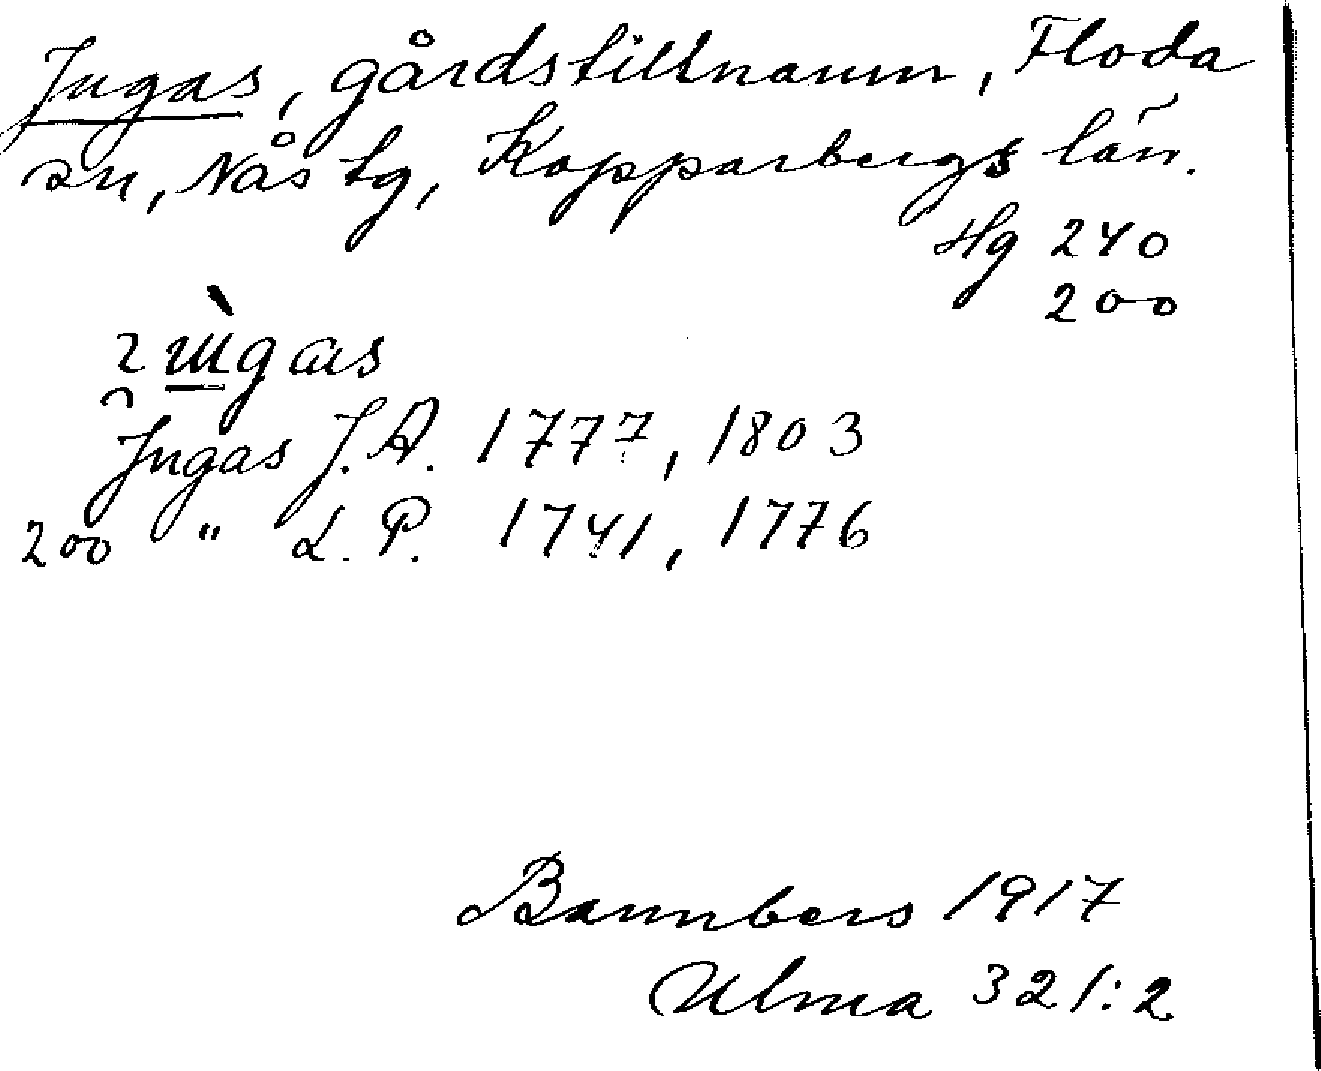 Jugas, gårdstillnamn, Floda
sn, Nås tg, Kopparbergs län.
Hg 240
200
Jugas J. A. 1777, 1803
200 " L. P. 1741, 1776
Bannbers 1917
Ulma 321:2